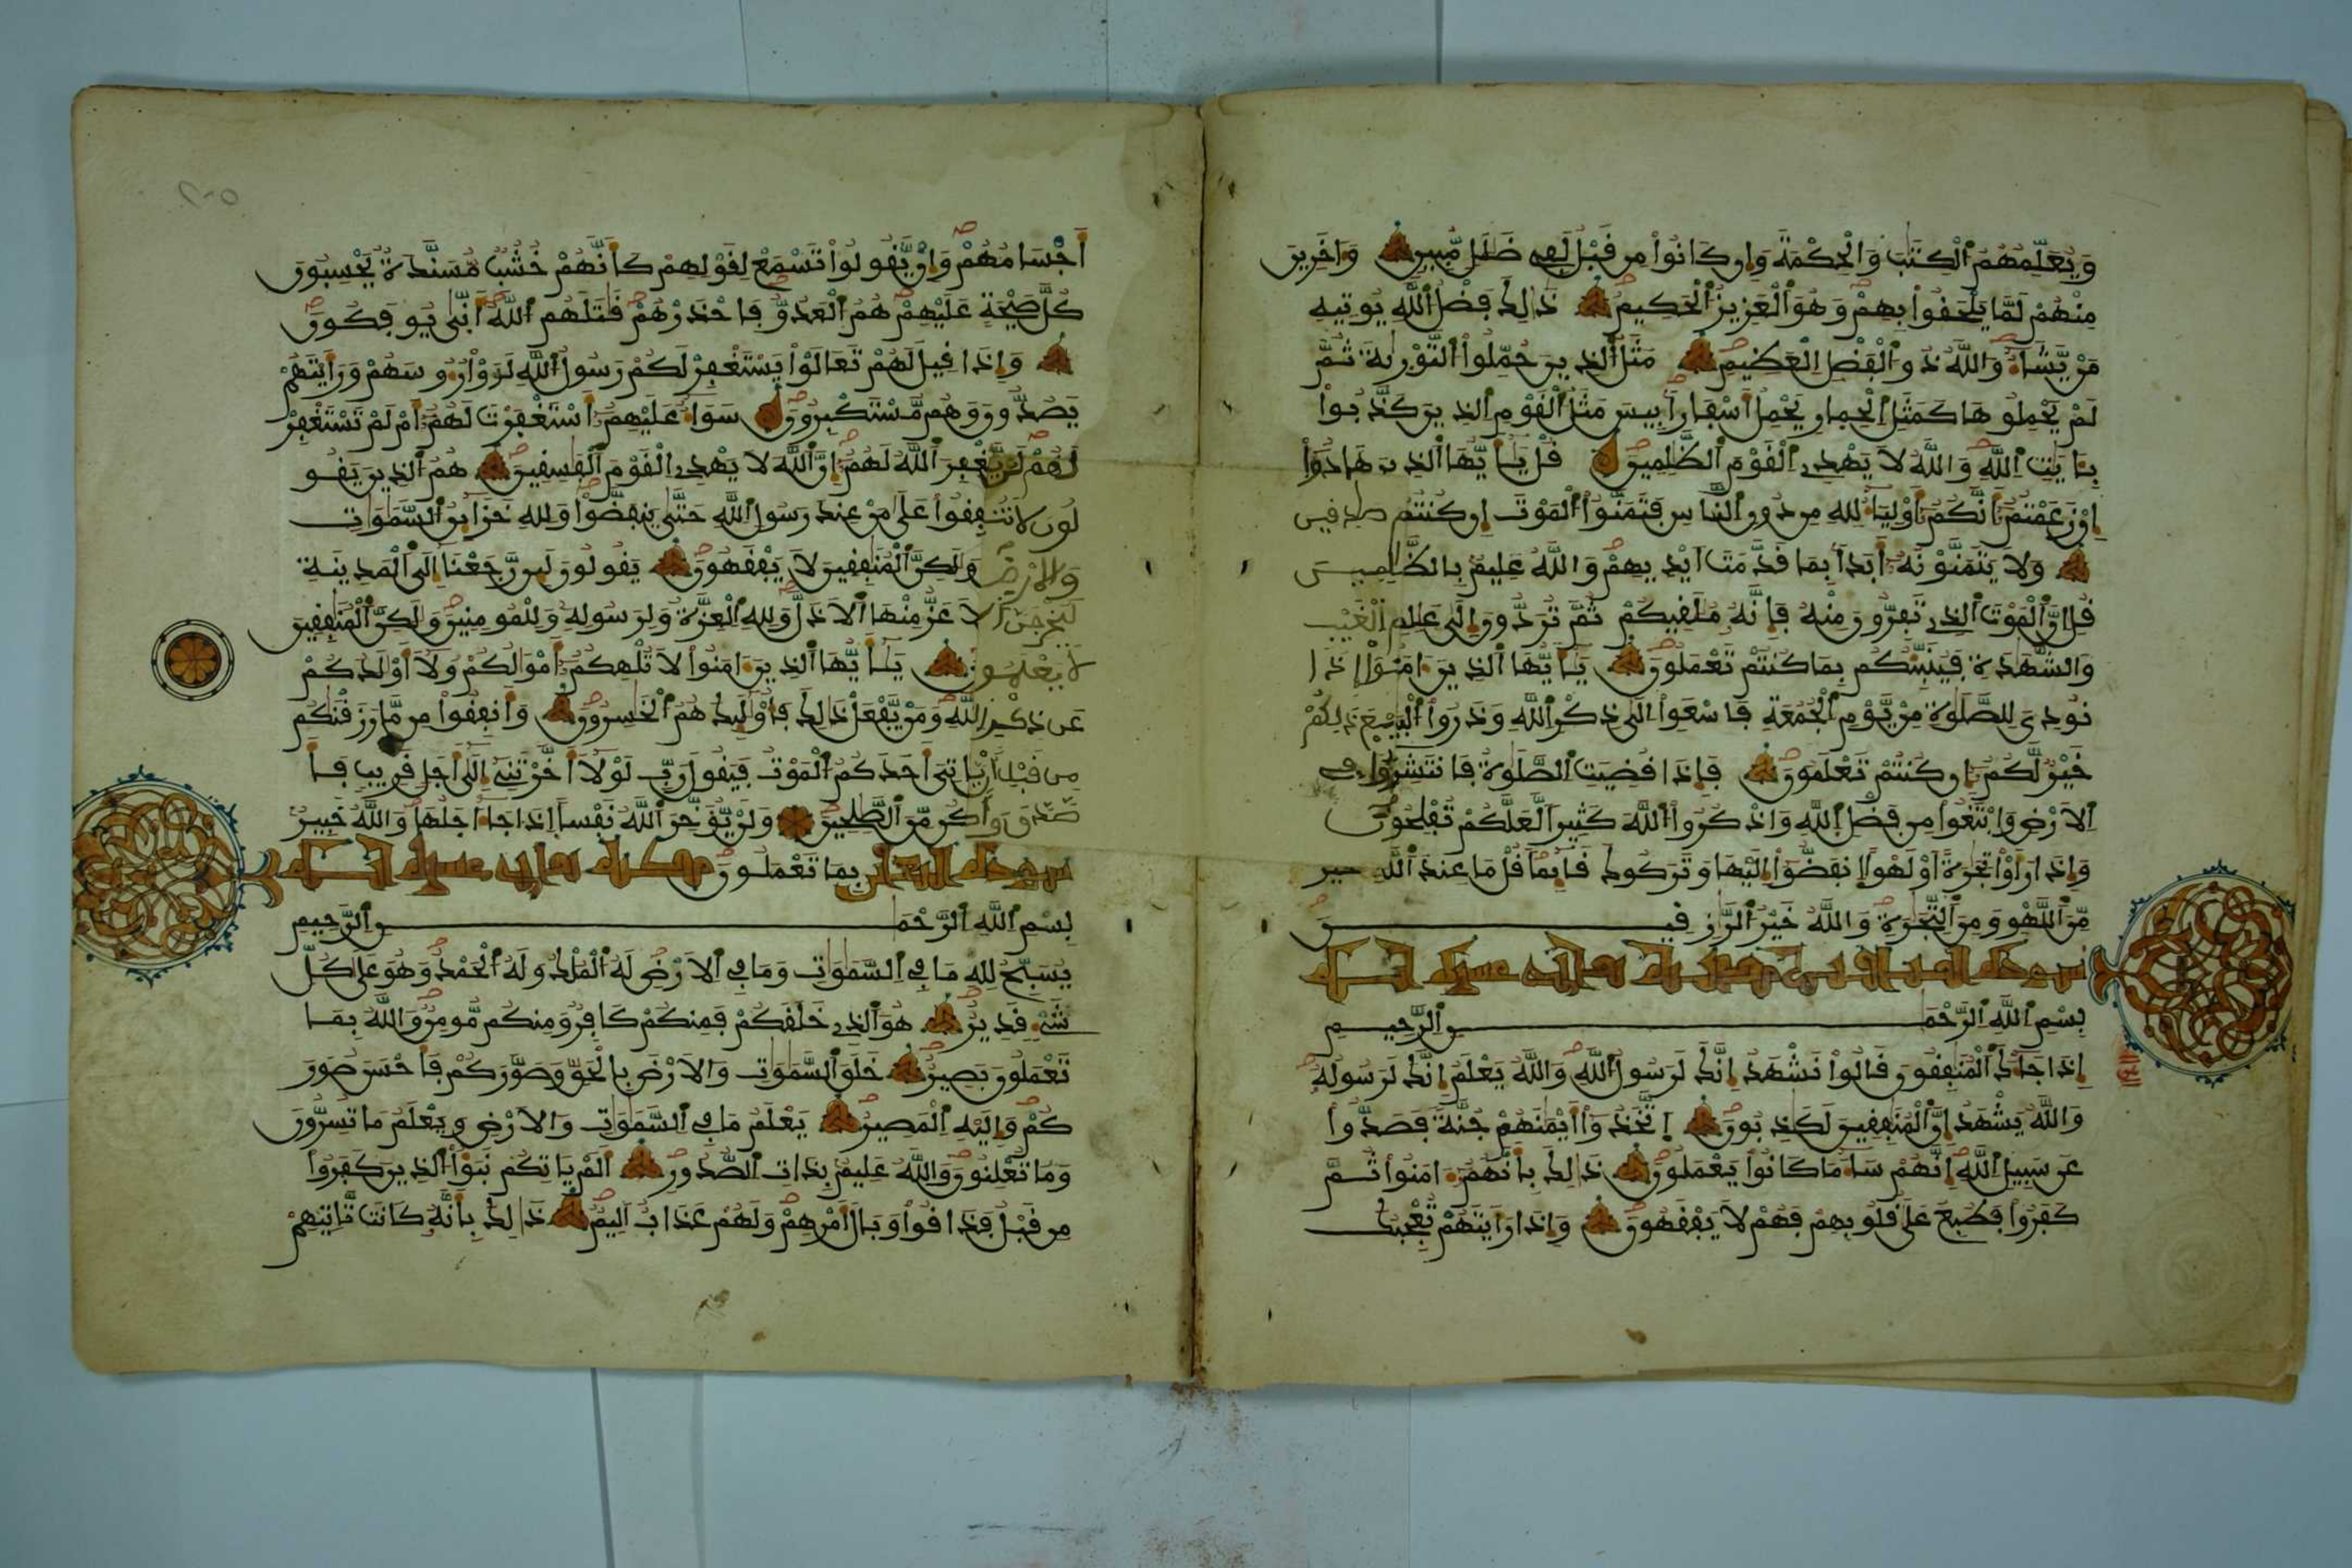 وَيُعَلِّمُهُمُ الْكِتَٰبَ وَالْحِكْمَةَ وَإِن كَانُواْ مِن قَبْلُ لَفِے ضَلَٰلٖ مُّبِينٖ وَءَاخَرِينَ
مِنْهُمْ لَمَّا يَلْحَقُواْ بِهِمْ وَهُوَ الْعَزِيزُ الْحَكِيمُ ذَٰلِكَ فَضْلُ اللَّهِ يُوتِيهِ
مَنْ يَّشَآءُ وَاللَّهُ ذُو الْفَضْلِ الْعَظِيمِ مَثَلُ الذِينَ حُمِّلُواْ التَّوْرَىٰةَ ثُمَّ
لَمْ يَحْمِلُوهَا كَمَثَلِ الْحِمارِ يَحْمِلُ أَسْفَاراَۢ بِيسَ مَثَلُ الْقَوْمِ الذِينَ كَذَّبُواْ
بِـَٔايَٰتِ اللَّهِ وَاللَّهُ لاَ يَهْدِے الْقَوْمَ الظَّٰلِمِينَ قُلْ يَٰٓأَيُّهَا الذِينَ هَادُوٓاْ
إِن زَعَمْتُمُۥٓ أَنَّكُمُۥٓ أَوْلِيَآءُ لِلهِ مِن دُونِ النَّاسِ فَتَمَنَّوُاْ الْمَوْتَ إِن كُنتُمْ صَٰدِقِينَ
وَلاَ يَتَمَنَّوْنَهُۥٓ أَبَداَۢ بِمَا قَدَّمَتَ اَيْدِيهِمْ وَاللَّهُ عَلِيمُۢ بِالظَّٰلِمِينَ
قُلِ انَّ الْمَوْتَ الذِے تَفِرُّونَ مِنْهُ فَإِنَّهُۥ مُلَٰقِيكُمْ ثُمَّ تُرَدُّونَ إِلَىٰ عَٰلِمِ الْغَيْبِ
وَالشَّهَٰدَةِ فَيُنَبِّئُكُم بِمَا كُنتُمْ تَعْمَلُونَ يَٰٓأَيُّهَا الذِينَ ءَامَنُوٓاْ إِذَا
نُودِيَ لِلصَّلَوٰةِ مِنْ يَّوْمِ الْجُمُعَةِ فَاسْعَوِاْ الَىٰ ذِكْرِ اللَّهِ وَذَرُواْ الْبَيْعَ ذَٰلِكُمْ
خَيْرٞ لَّكُمُۥٓ إِن كُنتُمْ تَعْلَمُونَ فَإِذَا قُضِيَتِ الصَّلَوٰةُ فَانتَشِرُواْ فِے
الاَرْضِ وَابْتَغُواْ مِن فَضْلِ اللَّهِ وَاذْكُرُواْ اللَّهَ كَثِيراٗ لَّعَلَّكُمْ تُفْلِحُونَ
وَإِذَا رَأَوْاْ تِجَٰرَةً اَوْ لَهْواً اِنفَضُّوٓاْ إِلَيْهَا وَتَرَكُوكَ قَآئِماٗ قُلْ مَا عِندَ اللَّهِ خير
مِّنَ اللَّهْوِ وَمِنَ التِّجَٰرَةِ وَاللَّهُ خَيْرُ الرَّٰزِقِينَ
بِسْمِ اللَّهِ الرَّحْمَٰنِ الرَّحِيمِ
إِذَا جَآءَكَ الْمُنَٰفِقُونَ قَالُواْ نَشْهَدُ إِنَّكَ لَرَسُولُ اللَّهِ وَاللَّهُ يَعْلَمُ إِنَّكَ لَرَسُولُهُ
وَاللَّهُ يَشْهَدُ إِنَّ الْمُنَٰفِقِينَ لَكَٰذِبُونَ اَتَّخَذُوٓاْ أَيْمَٰنَهُمْ جُنَّةٗ فَصَدُّواْ
عَن سَبِيلِ اللَّهِ إِنَّهُمْ سَآءَ مَا كَانُواْ يَعْمَلُونَ ذَٰلِكَ بِأَنَّهُمُۥٓ ءَامَنُواْ ثُمَّ
كَفَرُواْ فَطُبِعَ عَلَىٰ قُلُوبِهِمْ فَهُمْ لاَ يَفْقَهُونَ وَإِذَا رَأَيْتَهُمْ تُعْجِبُكَ
أَجْسَامُهُمْ وَإِنْ يَّقُولُواْ تَسْمَعْ لِقَوْلِهِمْ كَأَنَّهُمْ خُشُبٞ مُّسَنَّدَةٞ يَحْسِبُونَ
كُلَّ صَيْحَةٍ عَلَيْهِمْ هُمُ الْعَدُوُّ فَاحْذَرْهُمْ قَٰتَلَهُمُ اللَّهُ أَنَّىٰ يُوفَكُونَ
وَإِذَا قِيلَ لَهُمْ تَعَالَوْاْ يَسْتَغْفِرْ لَكُمْ رَسُولُ اللَّهِ لَوَوْاْ رُءُوسَهُمْ وَرَأَيْتَهُمْ
يَصُدُّونَ وَهُم مُّسْتَكْبِرُونَ سَوَآءٌ عَلَيْهِمُۥٓ أَسْتَغْفَرْتَ لَهُمُۥٓ أَمْ لَمْ تَسْتَغْفِرْ
لَهُمْ لَنْ يَّغْفِرَ اللَّهُ لَهُمُۥٓ إِنَّ اللَّهَ لاَ يَهْدِے الْقَوْمَ الْفَٰسِقِينَ هُمُ الذِينَ يَقُو
لُونَ لاَ تُنفِقُواْ عَلَىٰ مَنْ عِندَ رَسُولِ اللَّهِ حَتَّىٰ يَنفَضُّواْ وَلِلهِ خَزَآئِنُ السَّمَٰوَٰتِ
وَالاَرْضِ وَلَٰكِنَّ الْمُنَٰفِقِينَ لاَ يَفْقَهُونَ يَقُولُونَ لَئِن رَّجَعْنَآ إِلَى الْمَدِينَةِ
لَيُخْرِجَنَّ الاَعَزُّ مِنْهَا الاَذَلَّ وَلِلهِ الْعِزَّةُ وَلِرَسُولِهِۦ وَلِلْمُومِنِينَ وَلَٰكِنَّ الْمُنَٰفِقِينَ
لاَ يَعْلَمُونَ يَٰٓأَيُّهَا الذِينَ ءَامَنُواْ لاَ تُلْهِكُمُۥٓ أَمْوَٰلُكُمْ وَلآَ أَوْلَٰدُكُمْ
عَن ذِكْرِ اللَّهِ وَمَنْ يَّفْعَلْ ذَٰلِكَ فَأُوْلَٰٓئِكَ هُمُ الْخَٰسِرُونَ وَأَنفِقُواْ مِن مَّا رَزَقْنَٰكُم
مِن قَبْلِ أَنْ يَّاتِيَ أَحَدَكُمُ الْمَوْتُ فَيَقُولَ رَبِّ لَوْلآَ أَخَّرْتَنِےٓ إِلَىٰٓ أَجَلٖ قَرِيبٖ فَأ
صَّدَّقَ وَأَكُن مِّنَ الصَّٰلِحِينَ وَلَنْ يُّؤَخِّرَ اللَّهُ نَفْساً إِذَا جَآءَ اجَلُهَا وَاللَّهُ خَبِيرُۢ
بِمَا تَعْمَلُونَ
بِسْمِ اللَّهِ الرَّحْمَٰنِ الرَّحِيمِ
يُسَبِّحُ لِلهِ مَا فِے السَّمَٰوَٰتِ وَمَا فِے الاَرْضِ لَهُ الْمُلْكُ وَلَهُ الْحَمْدُ وَهُوَ عَلَىٰ كُلِّ
شَےْءٖ قَدِيرٌ هُوَ الذِے خَلَقَكُمْ فَمِنكُمْ كَافِرٞ وَمِنكُم مُّومِنٞ وَاللَّهُ بِمَا
تَعْمَلُونَ بَصِيرٌ خَلَقَ السَّمَٰوَٰتِ وَالاَرْضَ بِالْحَقِّ وَصَوَّرَكُمْ فَأَحْسَنَ صُوَرَ
كُمْ وَإِلَيْهِ الْمَصِيرُ يَعْلَمُ مَا فِے السَّمَٰوَٰتِ وَالاَرْضِ وَيَعْلَمُ مَا تُسِرُّونَ
وَمَا تُعْلِنُونَ وَاللَّهُ عَلِيمُۢ بِذَاتِ الصُّدُورِ أَلَمْ يَاتِكُمْ نَبَؤُاْ الذِينَ كَفَرُواْ
مِن قَبْلُ فَذَاقُواْ وَبَالَ أَمْرِهِمْ وَلَهُمْ عَذَابٌ اَلِيمٌ ذَٰلِكَ بِأَنَّهُۥ كَانَت تَّاتِيهِمْ